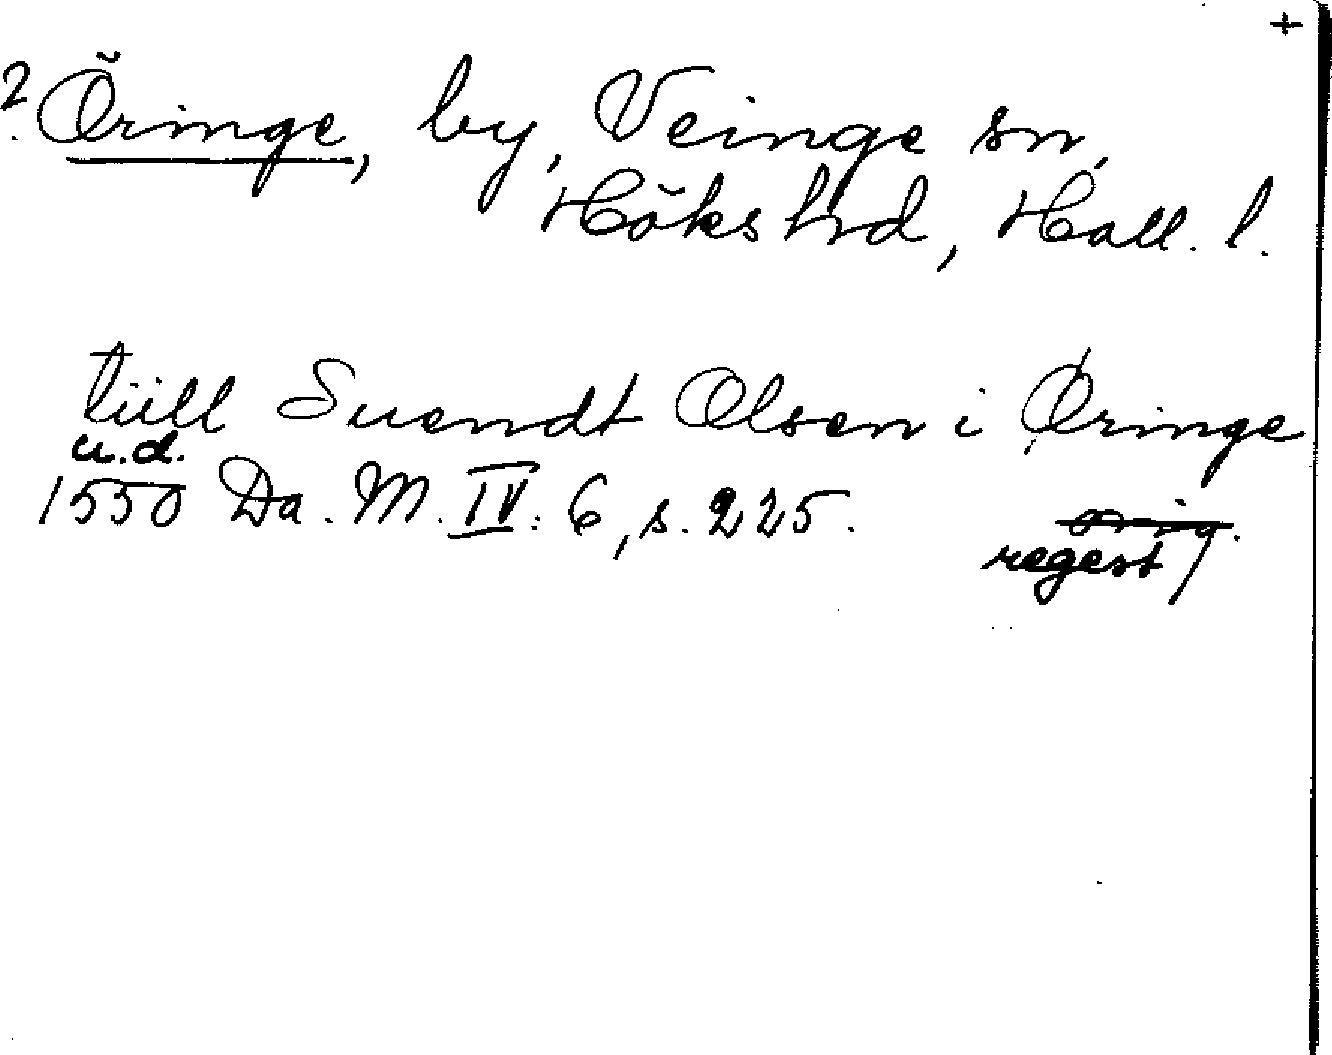 +
? Öringe, by, Veinge sn,
Höks hrd, Hall. l.
tiill Suendt Olsen i Øringe
u.d.
1550 Da. M. IV: 6, s. 225. orig.
regest